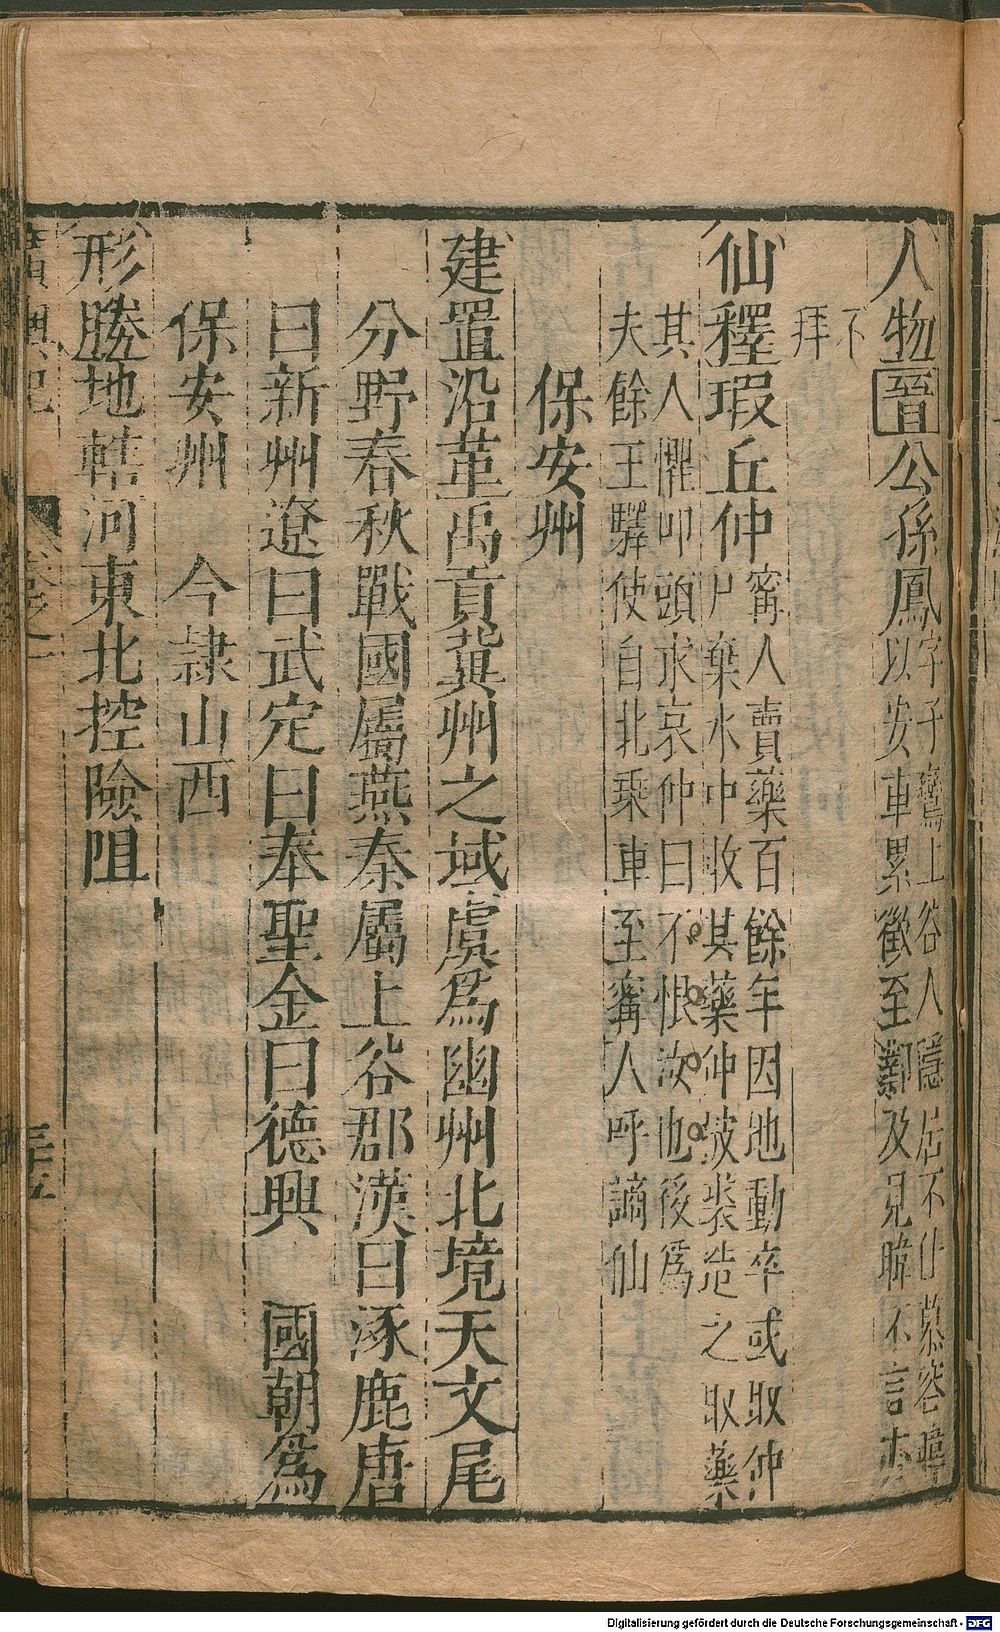 人物晉公孫鳳字子鸞上谷人隱居不仕慕容暐
以安車累徵至鄴及見暐不言
不
拜
仙釋瑕丘仲甯人賣藥百餘年因地動卒或取仲
尸棄水中收其藥仲披裘造之取藥
其人懼叩頭求哀仲曰不恨汝也後爲
夫餘王驛使自北乘車至甯人呼謫仙
保安州
建置沿革禹貢冀州之域虞爲幽州北境天文尾
分野春秋戰國屬燕秦屬上谷郡漢曰涿鹿唐
曰新州遼曰武定曰奉聖金曰德興 國朝爲
保安州 今隸山西
形勝地轄河東北控險阻
廣輿記
卷之一
三十五
Digitalisierung gefördert durch die Deutsche Forschungsgemeinschaft - DFG